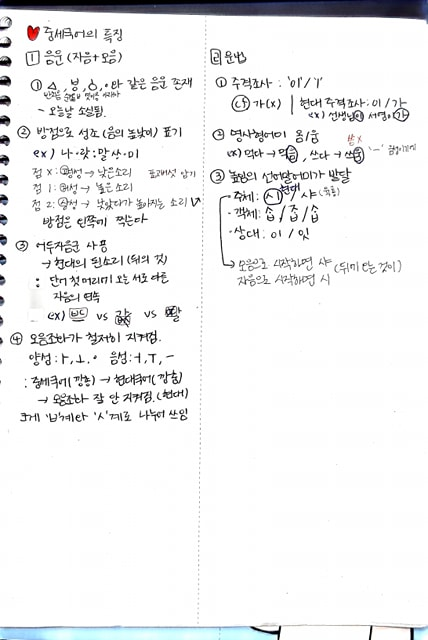 중세국어의 특징
1 음운 (자음+모음)
① ㅿ, ㅸ, ㆁ, ㆍ와 같은 음운 존재
반치음 순경음ㅂ 옛이응 아래아
→ 오늘날 소실됨.
② 방점으로 성조 (음의 높낮이) 표기
ex) 나·랏:말ᄊᆞ·미
점 X: 평성 → 낮은소리
점 1: 거성 → 높은 소리
점 2: 상성 → 낮았다가 높아지는 소리
방점은 왼쪽에 찍는다
③ 어두자음군 사용
→ 현대의 된소리 (뒤의 것)
: 단어 첫머리에 오는 서로 다른
자음의 연속
ex) vs vs
④ 모음조화가 철저히 지켜짐.
양성: ㅏ, ㅗ, ㆍ 음성: ㅓ, ㅜ, ㅡ
: 중세국어(깡총) → 현대국어(깡충)
→ 모음조화 잘 안 지켜짐. (현대)
크게 'ㅂ'계와 'ㅅ'계로 나누어 쓰임
2 문법
① 주격조사 : '이'/'ㅣ'
가(X) | 현대 주격조사: 이/가
ex) 선생님이 서영이가
② 명사형어미 옴/움
ex) 먹다 →
③ 높임의 선어말어미가 발달
현대
주체: 시 / 샤
·객체: 숩/줍/습
·상대: 이 / 잇
→ 모음으로 시작하면 샤 (뒤에 오는 것이)
자음으로 시작하면 시